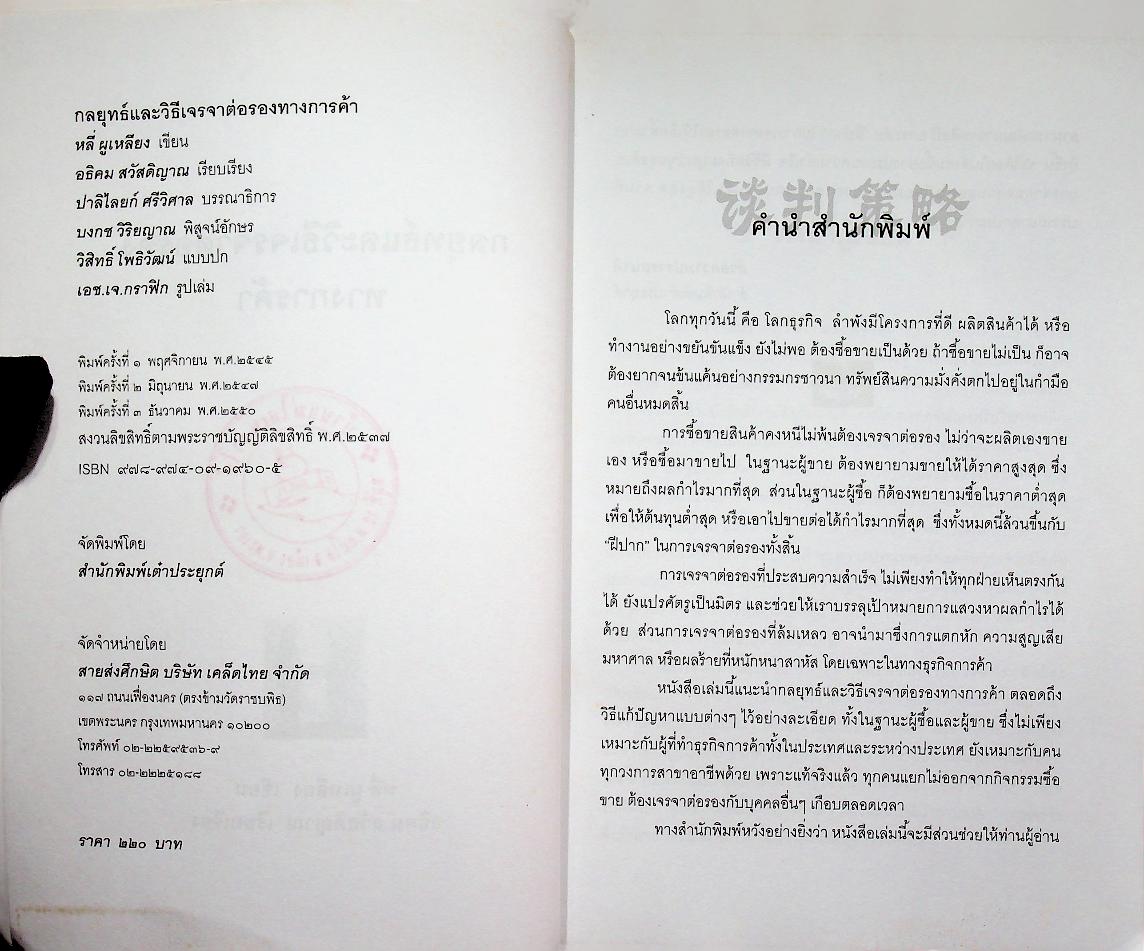 กลยุทธ์และวิธีเจรจาต่อรองทางการค้า
หลี่ ผูเหลียง เขียน
อธิคม สวัสดิญาณ เรียบเรียง
ปาลิไลยก์ ศรีวิศาล บรรณาธิการ
บงกช วิริยญาณ พิสูจน์อักษร
วิสิทธิ์ โพธิวัฒน์ แบบปก
เอช.เจ.กราฟิก รูปเล่ม
พิมพ์ครั้งที่ ๑ พฤศจิกายน พ.ศ.๒๕๔๕
พิมพ์ครั้งที่ ๒ มิถุนายน พ.ศ.๒๕๔๗
พิมพ์ครั้งที่ ๓ ธันวาคม พ.ศ.๒๕๕๐
สงวนลิขสิทธิ์ตามพระราชบัญญัติลิขสิทธิ์ พ.ศ.๒๕๓๗
ISBN ๙๗๘-๙๗๔-๐๙-๑๙๖๐-๕
จัดพิมพ์โดย
สำนักพิมพ์เต๋าประยุกต์
จัดจำหน่ายโดย
สายส่งศึกษิต บริษัท เคล็ดไทย จำกัด
๑๑๗ ถนนเฟื่องนคร (ตรงข้ามวัดราชบพิธ)
เขตพระนคร กรุงเทพมหานคร ๑๐๒๐๐
โทรศัพท์ ๐๒-๒๒๕๙๕๓๖-๙
โทรสาร ๐๒-๒๒๒๕๑๘๘
ราคา ๒๒๐ บาท
谈判策略
คำนำสำนักพิมพ์
โลกทุกวันนี้ คือ โลกธุรกิจ ลำพังมีโครงการที่ดี ผลิตสินค้าได้ หรือ
ทำงานอย่างขยันขันแข็ง ยังไม่พอ ต้องซื้อขายเป็นด้วย ถ้าซื้อขายไม่เป็น ก็อาจ
ต้องยากจนข้นแค้นอย่างกรรมกรชาวนา ทรัพย์สินความมั่งคั่งตกไปอยู่ในกำมือ
คนอื่นหมดสิ้น
การซื้อขายสินค้าคงหนีไม่พ้นต้องเจรจาต่อรอง ไม่ว่าจะผลิตเองขาย
เอง หรือซื้อมาขายไป ในฐานะผู้ขาย ต้องพยายามขายให้ได้ราคาสูงสุด ซึ่ง
หมายถึงผลกำไรมากที่สุด ส่วนในฐานะผู้ซื้อ ก็ต้องพยายามซื้อในราคาต่ำสุด
เพื่อให้ต้นทุนต่ำสุด หรือเอาไปขายต่อได้กำไรมากที่สุด ซึ่งทั้งหมดนี้ล้วนขึ้นกับ
“ฝีปาก” ในการเจรจาต่อรองทั้งสิ้น
การเจรจาต่อรองที่ประสบความสำเร็จ ไม่เพียงทำให้ทุกฝ่ายเห็นตรงกัน
ได้ ยังแปรศัตรูเป็นมิตร และช่วยให้เราบรรลุเป้าหมายการแสวงหาผลกำไรได้
ด้วย ส่วนการเจรจาต่อรองที่ล้มเหลว อาจนำมาซึ่งการแตกหัก ความสูญเสีย
มหาศาล หรือผลร้ายที่หนักหนาสาหัส โดยเฉพาะในทางธุรกิจการค้า
หนังสือเล่มนี้แนะนำกลยุทธ์และวิธีเจรจาต่อรองทางการค้า ตลอดถึง
วิธีแก้ปัญหาแบบต่างๆ ไว้อย่างละเอียด ทั้งในฐานะผู้ซื้อและผู้ขาย ซึ่งไม่เพียง
เหมาะกับผู้ที่ทำธุรกิจการค้าทั้งในประเทศและระหว่างประเทศ ยังเหมาะกับคน
ทุกวงการสาขาอาชีพด้วย เพราะแท้จริงแล้ว ทุกคนแยกไม่ออกจากกิจกรรมซื้อ
ขาย ต้องเจรจาต่อรองกับบุคคลอื่นๆ เกือบตลอดเวลา
ทางสำนักพิมพ์หวังอย่างยิ่งว่า หนังสือเล่มนี้จะมีส่วนช่วยให้ท่านผู้อ่าน